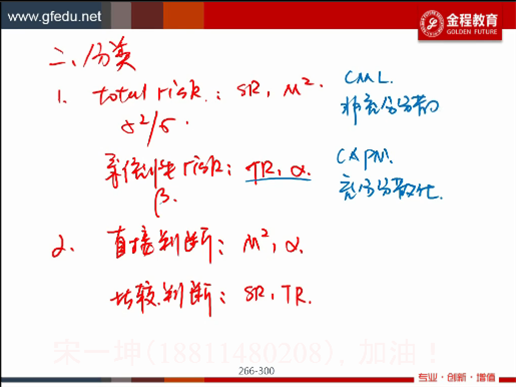 www.gfedu.net
金程教育
GOLDEN FUTURE
二、分类
1. total risk : SR, M². CML.
σ²/σ. 非充分分散
系统性risk : TR, α. CAPM.
β. 充分分散化.
2. 直接判断 : M², α.
比较判断 : SR, TR.
宋一坤(18811480208)，加油！
266-300
专业·创新·增值